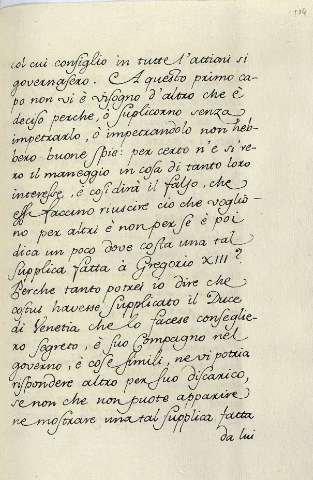 194
col cui consiglio in tutte l'attioni si
governasero. A questo primo ca-
po non vi è visogno d'altro che è
deciso perche, ò suplicorno senza
impetrarlo, ò impetrandolo non heb-
bero buone spie: per certo n'è si re-
ro il maneggio in cosa di tanto loro
interesse, e cosi dirà il falso, che
essi faccino riuscire ciò che voglio-
no per altri è non per sè è poi
dica un poco dove costa una tal
supplica fatta à Gregorio XIII?
Perche tanto potrei io dire che
costui havesse supplicato il Duce
di Venetia che lo facese conseglie-
ro sagreto, è suo Compagno nel
governo, è cose simili, ne vi potria
rispondere altro per suo discarico,
se non che non puote apparire
ne mostrare una tal supplica fatta
da lui